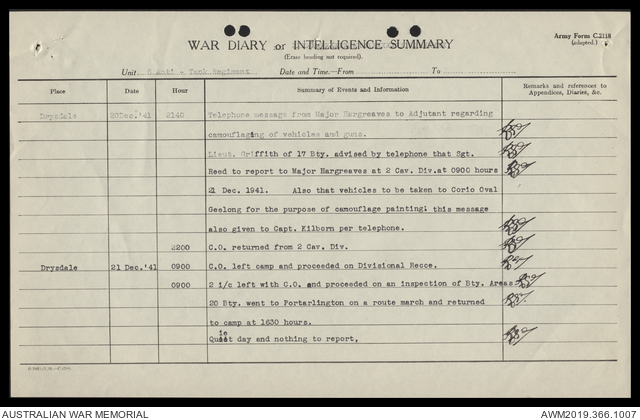 WAR DIARY or INTELLIGENCE SUMMARY
Army Form C.2118
(adapted.)
(Erase heading not required).
Unit Anti - Tank Regiment Date and Time.—From To
Place Date Hour Summary of Events and Information Remarks and references to Appendices, Diaries, &c.
Drysdale 20Dec.'41 2140 Telephone message from Major Hargreaves to Adjutant regarding
camouflaging of vehicles and guns.
Lieut. Griffith of 17 Bty. advised by telephone that Sgt.
Reed to report to Major Hargreaves at 2 Cav. Div.at 0900 hours
21 Dec. 1941. Also that vehicles to be taken to Corio Oval
Geelong for the purpose of camouflage painting; this message
also given to Capt. Kilborn per telephone.
2200 C.O. returned from 2 Cav. Div.
Drysdale 21 Dec.'41 0900 C.O. left camp and proceeded on Divisional Recce.
0900 2 i/c left with C.O. and proceeded on an inspection of Bty. Areas
20 Bty. went to Portarlington on a route march and returned
to camp at 1630 hours.
Quiet day and nothing to report,
AUSTRALIAN WAR MEMORIAL
AWM2019.366.1007